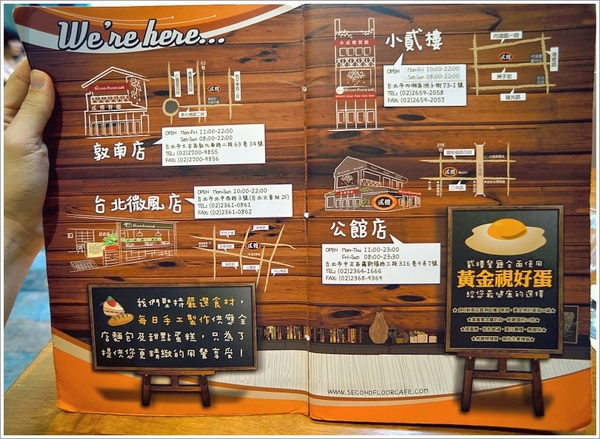 We're here...
敦南店
OPEN Mon-Fri 11:00-22:00
Sat-Sun 08:00-22:00
台北市大安區敦化南路二段63巷14號
TEL: (02)2700-9855
FAX: (02)2700-9856
台北微風店
OPEN Mon-Sun 10:00-22:00
台北市北平西路3號(台北火車站 2F)
TEL: (02)2361-0861
FAX: (02)2361-0862
我們堅持嚴選食材,
每日手工製作供應全
店麵包及甜點蛋糕,只為了
提供您更精緻的用餐享受!
小貳樓
小貳樓餐館
OPEN Mon-Fri 10:00-22:00
Sat-Sun 08:00-22:00
台北市內湖區洲子街73-1號
TEL: (02)2659-2058
FAX: (02)2659-2057
內湖路一段
洲子街
瑞光路
貳樓
公館店
OPEN Mon-Thu 11:00-23:00
Fri-Sun 08:00-23:30
台北市中正區羅斯福路三段316巷9弄7號
TEL: (02)2364-1666
FAX: (02)2368-9369
貳樓餐廳全面使用
黃金視好蛋
給您最健康的選擇
WWW.SECONDFLOORCAFE.COM